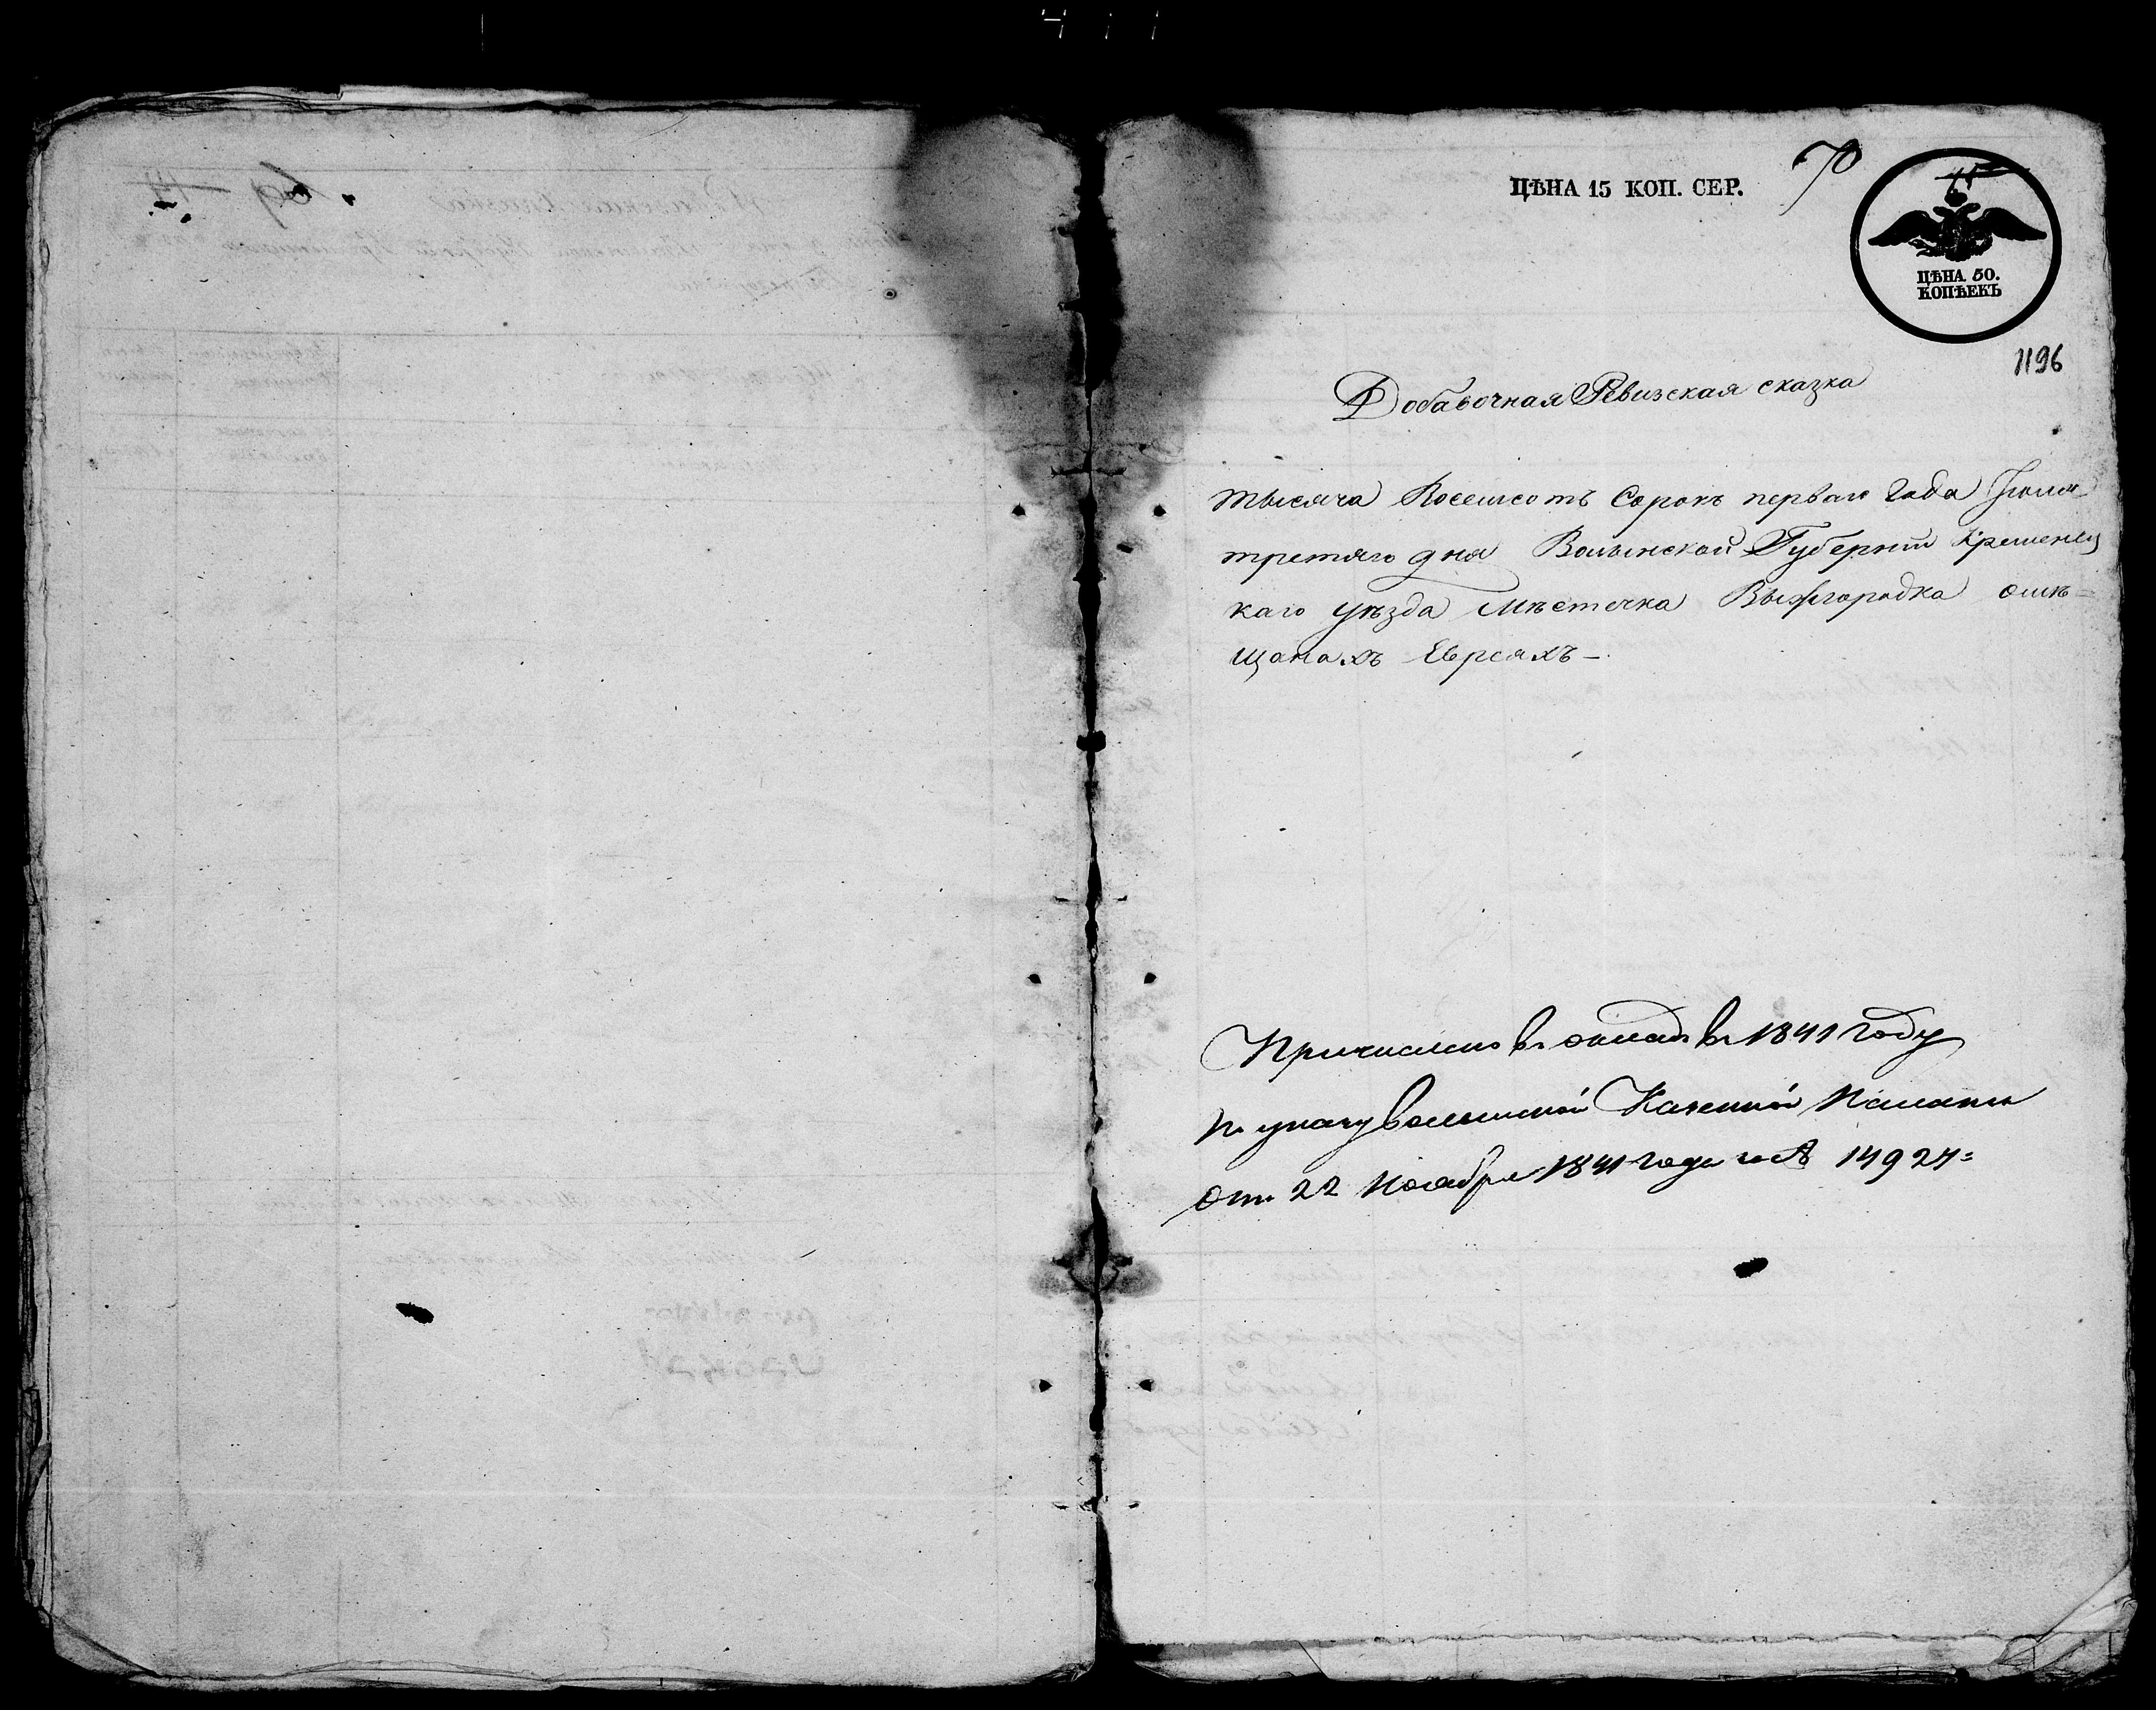 ЦѢНА 15 КОП. СЕР.
70
ЦѢНА 50.
КОПѢЕКЪ
1196
Добавочная Ревизская сказка
тысяча Восемсотъ Сорокъ перваго года Іюля
третяго дня Волынской Губерніи Кременец
каго уѣзда мѣстечка Выжгородка омѣ=
щанахъ Евреяхъ —
Причислено въ окладъ въ 1841 году
По указу Волынской Казенной Палаты
отъ 22 Ноября 1841 года за № 14924=